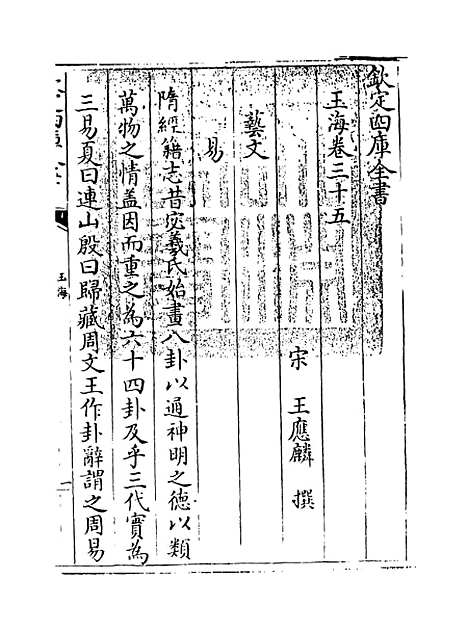 欽定四庫全書
玉海卷三十五
宋 王應麟 撰
藝文
易
隋經籍志昔宓羲氏始畫八卦以通神明之德以類
萬物之情蓋因而重之為六十四卦及乎三代實為
三易夏曰連山殷曰歸藏周文王作卦辭謂之周易
玉海
一